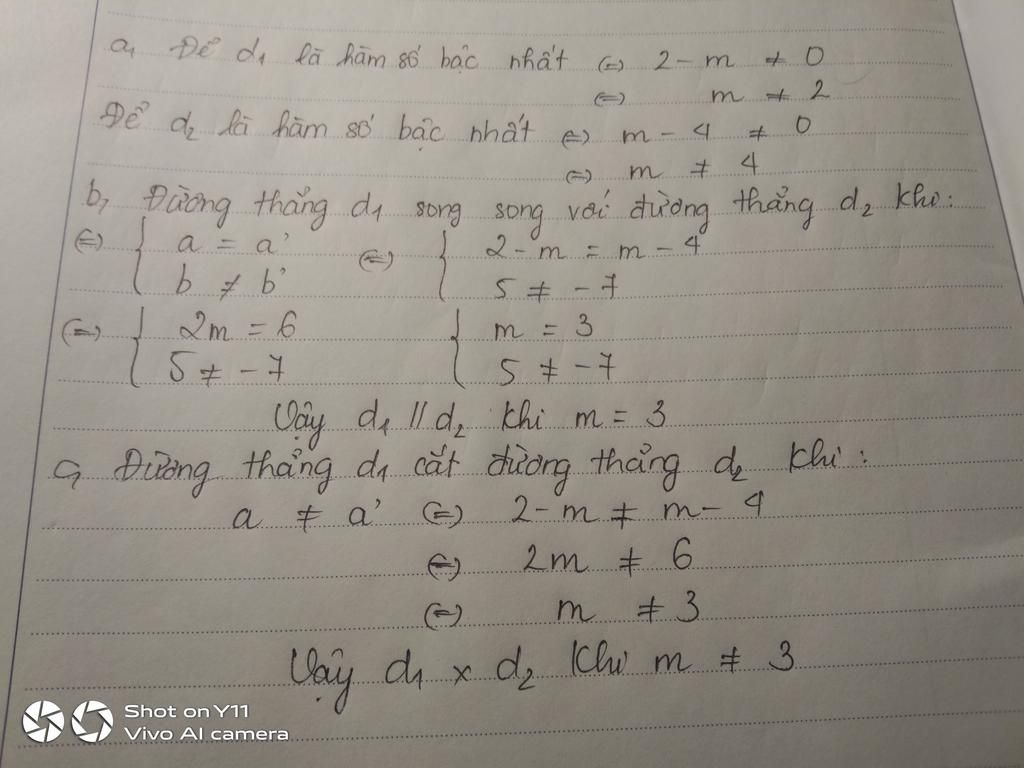 a, Để d1 là hàm số bậc nhất (=) 2 - m ≠ 0
(=) m ≠ 2
Để d2 là hàm số bậc nhất (=) m - 4 ≠ 0
(=) m ≠ 4
b, Đường thẳng d1 song song với đường thẳng d2 khi:
(=) { a = a' (=) { 2 - m = m - 4
b ≠ b' 5 ≠ -7
(=) { 2m = 6 { m = 3
5 ≠ -7 5 ≠ -7
Vậy d1 // d2 khi m = 3
c, Đường thẳng d1 cắt đường thẳng d2 khi:
a ≠ a' (=) 2 - m ≠ m - 4
(=) 2m ≠ 6
(=) m ≠ 3
Vậy d1 x d2 khi m ≠ 3
Shot on Y11
Vivo AI camera